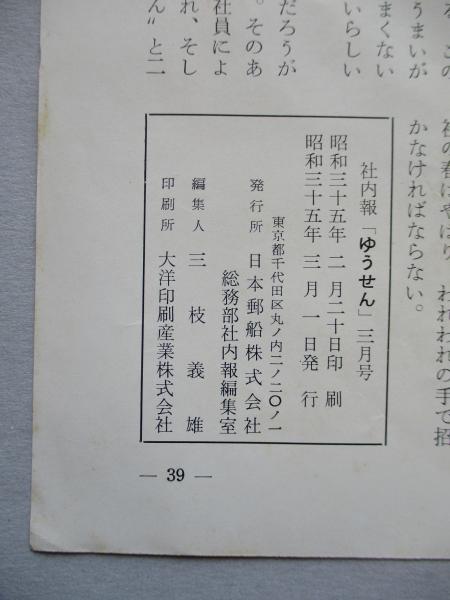 る。この
うまいが
まくない
いらしい
だろうが
。そのあ
社員によ
れ、そし
ん〃と二
社の春はやはり、われわれの手で招
かなければならない。
社内報「ゆうせん」三月号
昭和三十五年 二 月二十日印 刷
昭和三十五年 三 月 一 日発 行
東京都千代田区丸ノ内二ノ二〇ノ一
発行所 日本郵船株式会社
総務部社内報編集室
編集人 三枝義雄
印刷所 大洋印刷産業株式会社
— 39 —